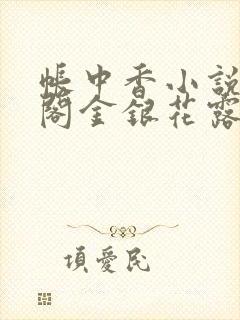 帳中香小說
閣金銀花露
項愛民